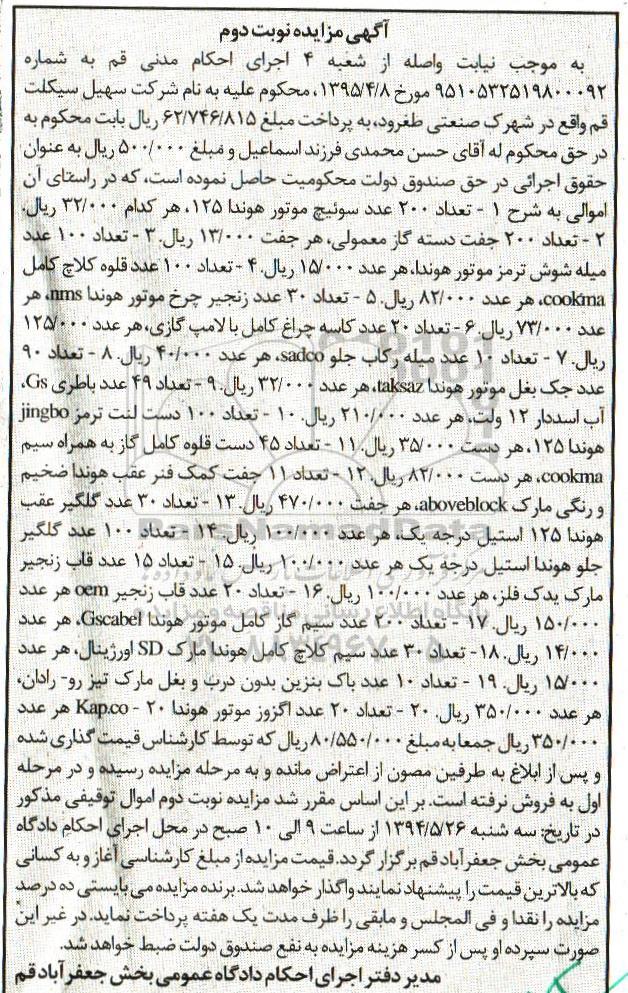 آگهی مزایده نوبت دوم
به موجب نیابت واصله از شعبه ۴ اجرای احکام مدنی قم به شماره
۹۵۱۰۵۳۲۵۱۹۸۰۰۰۹۲ مورخ ۱۳۹۵/۴/۸، محکوم علیه به نام شرکت سهیل سیکلت
قم واقع در شهرک صنعتی طغرود، به پرداخت مبلغ ۶۲/۷۴۶/۸۱۵ ریال بابت محکوم به
در حق محکوم له آقای حسن محمدی فرزند اسماعیل و مبلغ ۵۰۰/۰۰۰ ریال به عنوان
حقوق اجرائی در حق صندوق دولت محکومیت حاصل نموده است، که در راستای آن
اموالی به شرح ۱ - تعداد ۲۰۰ عدد سوئیچ موتور هوندا ۱۲۵، هر کدام ۳۲/۰۰۰ ریال.
۲ - تعداد ۲۰۰ جفت دسته گاز معمولی، هر جفت ۱۳/۰۰۰ ریال. ۳ - تعداد ۱۰۰ عدد
میله شوش ترمز موتور هوندا، هر عدد ۱۵/۰۰۰ ریال. ۴ - تعداد ۱۰۰ عدد قلوه کلاچ کامل
cookma، هر عدد ۸۲/۰۰۰ ریال. ۵ - تعداد ۳۰ عدد زنجیر چرخ موتور هوندا nms، هر
عدد ۷۳/۰۰۰ ریال. ۶ - تعداد ۲۰ عدد کاسه چراغ کامل با لامپ گازی، هر عدد ۱۲۵/۰۰۰
ریال. ۷ - تعداد ۱۰ عدد میله رکاب جلو sadco، هر عدد ۴۰/۰۰۰ ریال. ۸ - تعداد ۹۰
عدد جک بغل موتور هوندا taksaz، هر عدد ۳۲/۰۰۰ ریال. ۹ - تعداد ۴۹ عدد باطری Gs،
آب اسددار ۱۲ ولت، هر عدد ۲۱۰/۰۰۰ ریال. ۱۰ - تعداد ۱۰۰ دست لنت ترمز jingbo
هوندا ۱۲۵، هر دست ۳۵/۰۰۰ ریال. ۱۱ - تعداد ۴۵ دست قلوه کامل گاز به همراه سیم
cookma، هر دست ۸۲/۰۰۰ ریال. ۱۲ - تعداد ۱۱ جفت کمک فنر عقب هوندا ضخیم
و رنگی مارک aboveblock، هر جفت ۴۷۰/۰۰۰ ریال. ۱۳ - تعداد ۳۰ عدد گلگیر عقب
هوندا ۱۲۵ استیل درجه یک، هر عدد ۱۰۰/۰۰۰ ریال. ۱۴ - تعداد ۱۰۰ عدد گلگیر
جلو هوندا استیل درجه یک هر عدد ۱۰۰/۰۰۰ ریال. ۱۵ - تعداد ۱۵ عدد قاب زنجیر
مارک یدک فلز، هر عدد ۱۰۰/۰۰۰ ریال. ۱۶ - تعداد ۲۰ عدد قاب زنجیر oem هر عدد
۱۵۰/۰۰۰ ریال. ۱۷ - تعداد ۲۰۰ عدد سیم گاز کامل موتور هوندا Gscabel، هر عدد
۱۴/۰۰۰ ریال. ۱۸- تعداد ۳۰ عدد سیم کلاچ کامل هوندا مارک SD اورژینال، هر عدد
۱۵/۰۰۰ ریال. ۱۹ - تعداد ۱۰ عدد باک بنزین بدون درب و بغل مارک تیز رو- رادان،
هر عدد ۳۵۰/۰۰۰ ریال. ۲۰ - تعداد ۲۰ عدد اگزوز موتور هوندا ۲۰ - Kap.co هر عدد
۳۵۰/۰۰۰ ریال جمعا به مبلغ ۸۰/۵۵۰/۰۰۰ ریال که توسط کارشناس قیمت گذاری شده
و پس از ابلاغ به طرفین مصون از اعتراض مانده و به مرحله مزایده رسیده و در مرحله
اول به فروش نرفته است. بر این اساس مقرر شد مزایده نوبت دوم اموال توقیفی مذکور
در تاریخ: سه شنبه ۱۳۹۴/۵/۲۶ از ساعت ۹ الی ۱۰ صبح در محل اجرای احکام دادگاه
عمومی بخش جعفرآباد قم برگزار گردد. قیمت مزایده از مبلغ کارشناسی آغاز و به کسانی
که بالاترین قیمت را پیشنهاد نمایند واگذار خواهد شد. برنده مزایده می بایستی ده درصد
مزایده را نقدا و فی المجلس و مابقی را ظرف مدت یک هفته پرداخت نماید. در غیر این
صورت سپرده او پس از کسر هزینه مزایده به نفع صندوق دولت ضبط خواهد شد.
مدیر دفتر اجرای احکام دادگاه عمومی بخش جعفرآباد قم